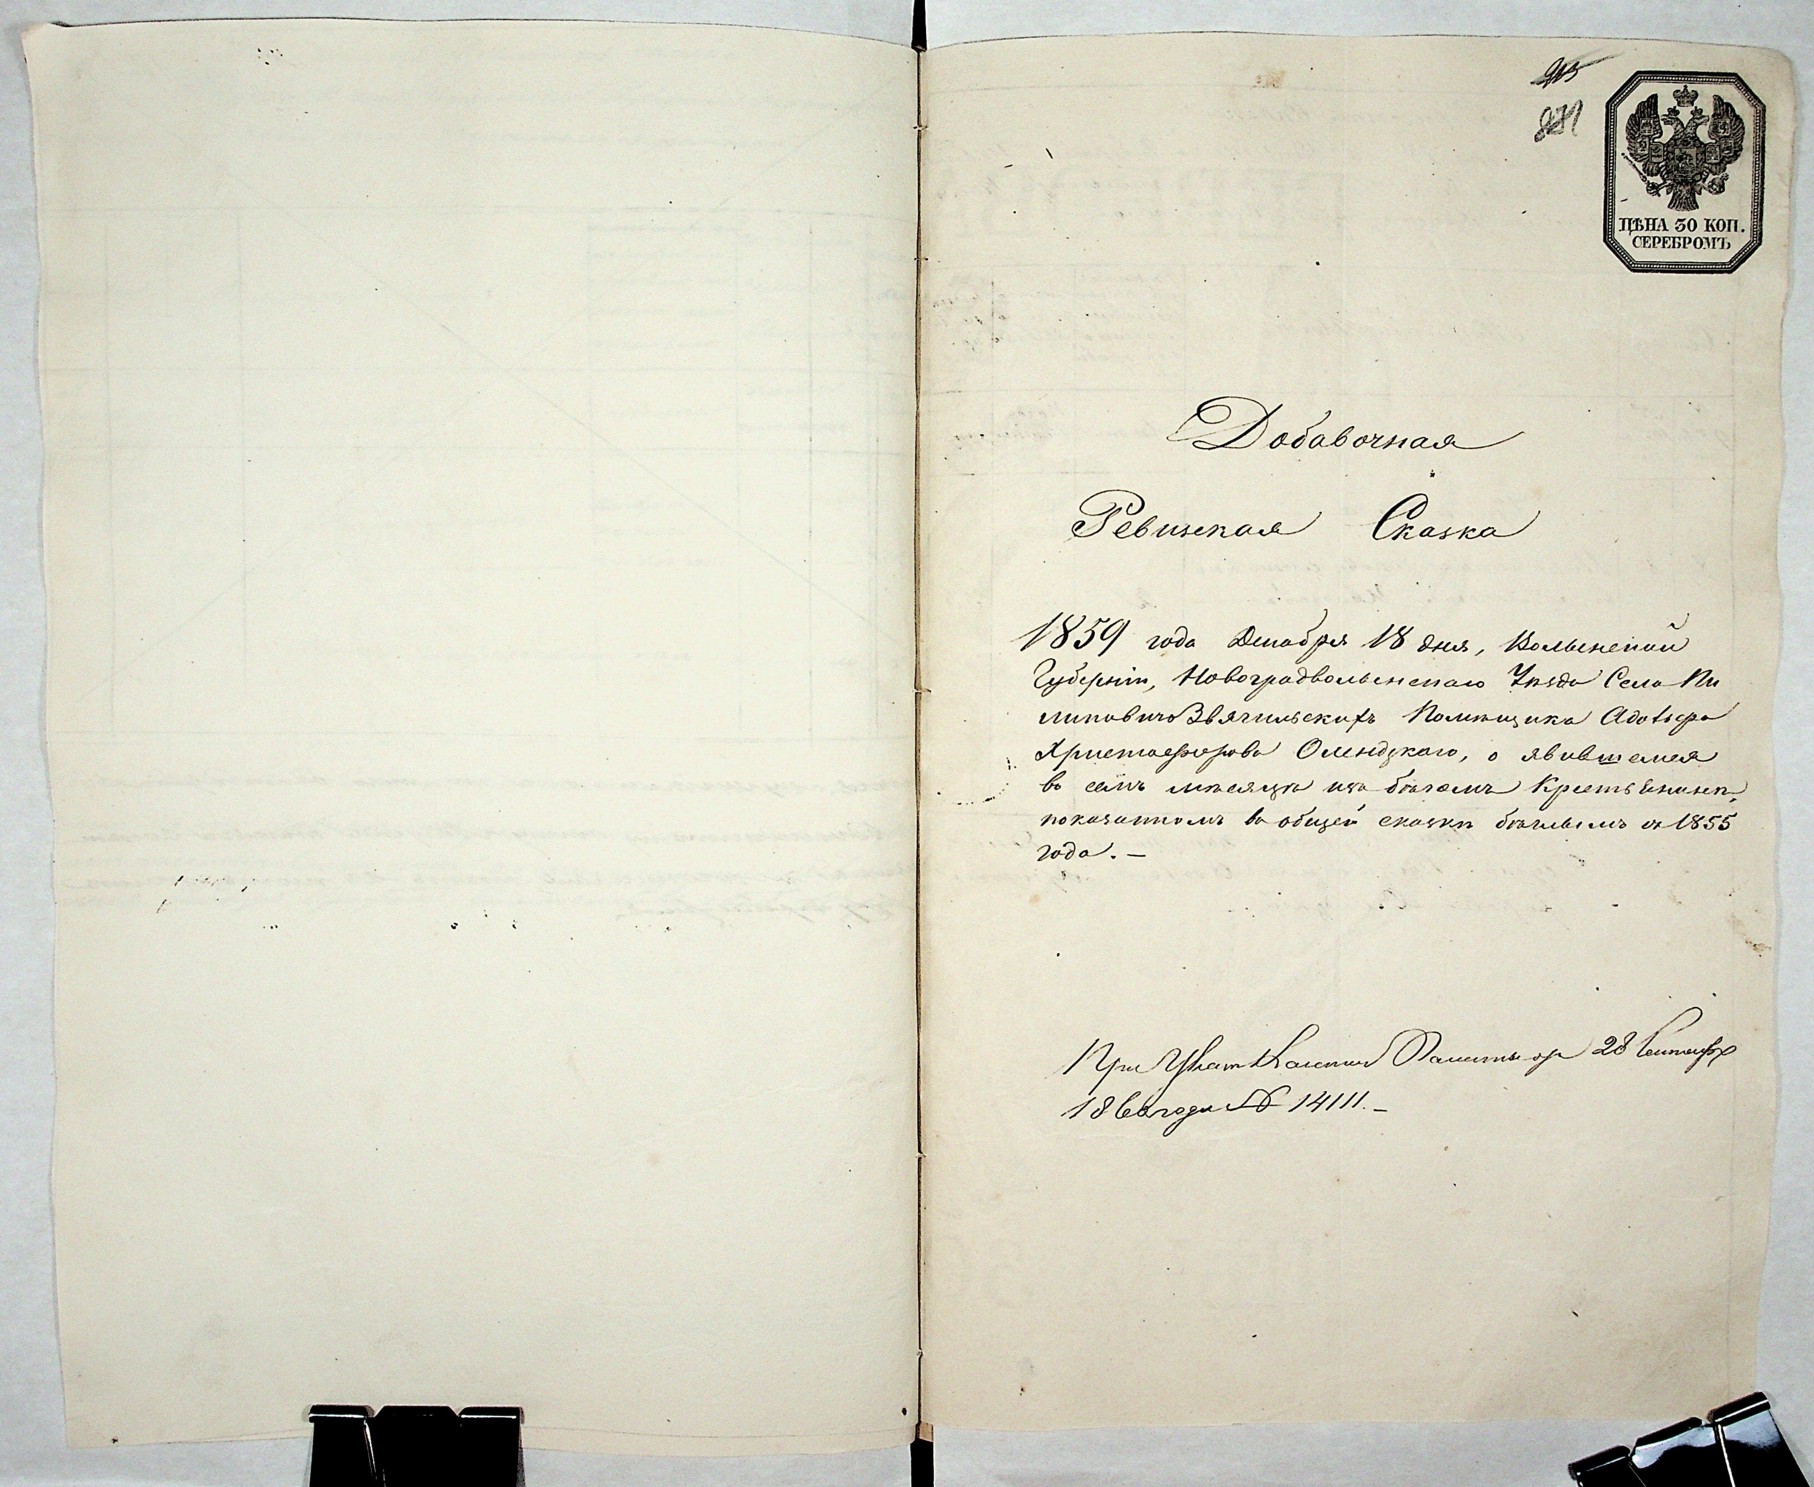 ЦѢНА 30 КОП.
СЕРЕБРОМЪ
Добавочная
Ревизская Сказка
1859 года Декабря 18 дня, Волынской
Губерніи, Новоградволынскаго Уѣзда Села Пи
липовичъ Звягильскихъ Помѣщика
Христофорова Олендзкаго, о явившемся
въ семъ мѣсяцѣ изъ бѣговъ Крестьянинѣ,
показанномъ въ общей сказкѣ бѣглымъ съ 1855
года. —
При Указѣ Казенной Палаты отъ 28 Сентября
года № 14111. —